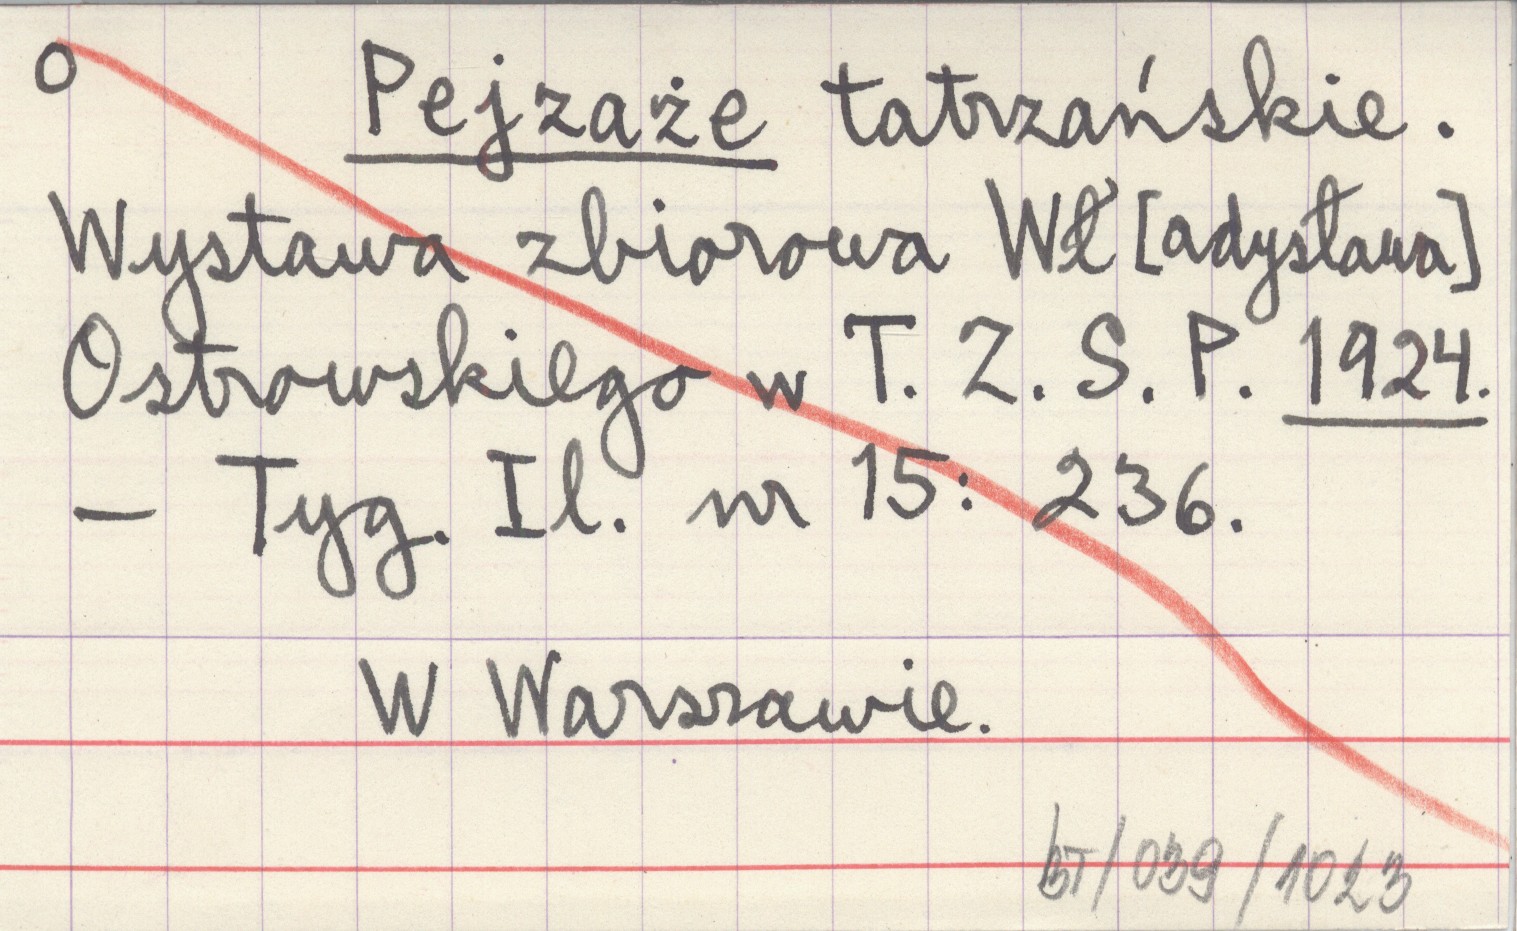 o Pejzaże tatrzańskie.
Wystawa zbiorowa Wł[adysława]
Ostrowskiego w T. Z. S. P. 1924.
— Tyg. Il. nr 15: 236.
W Warszawie.
BT/039/1023